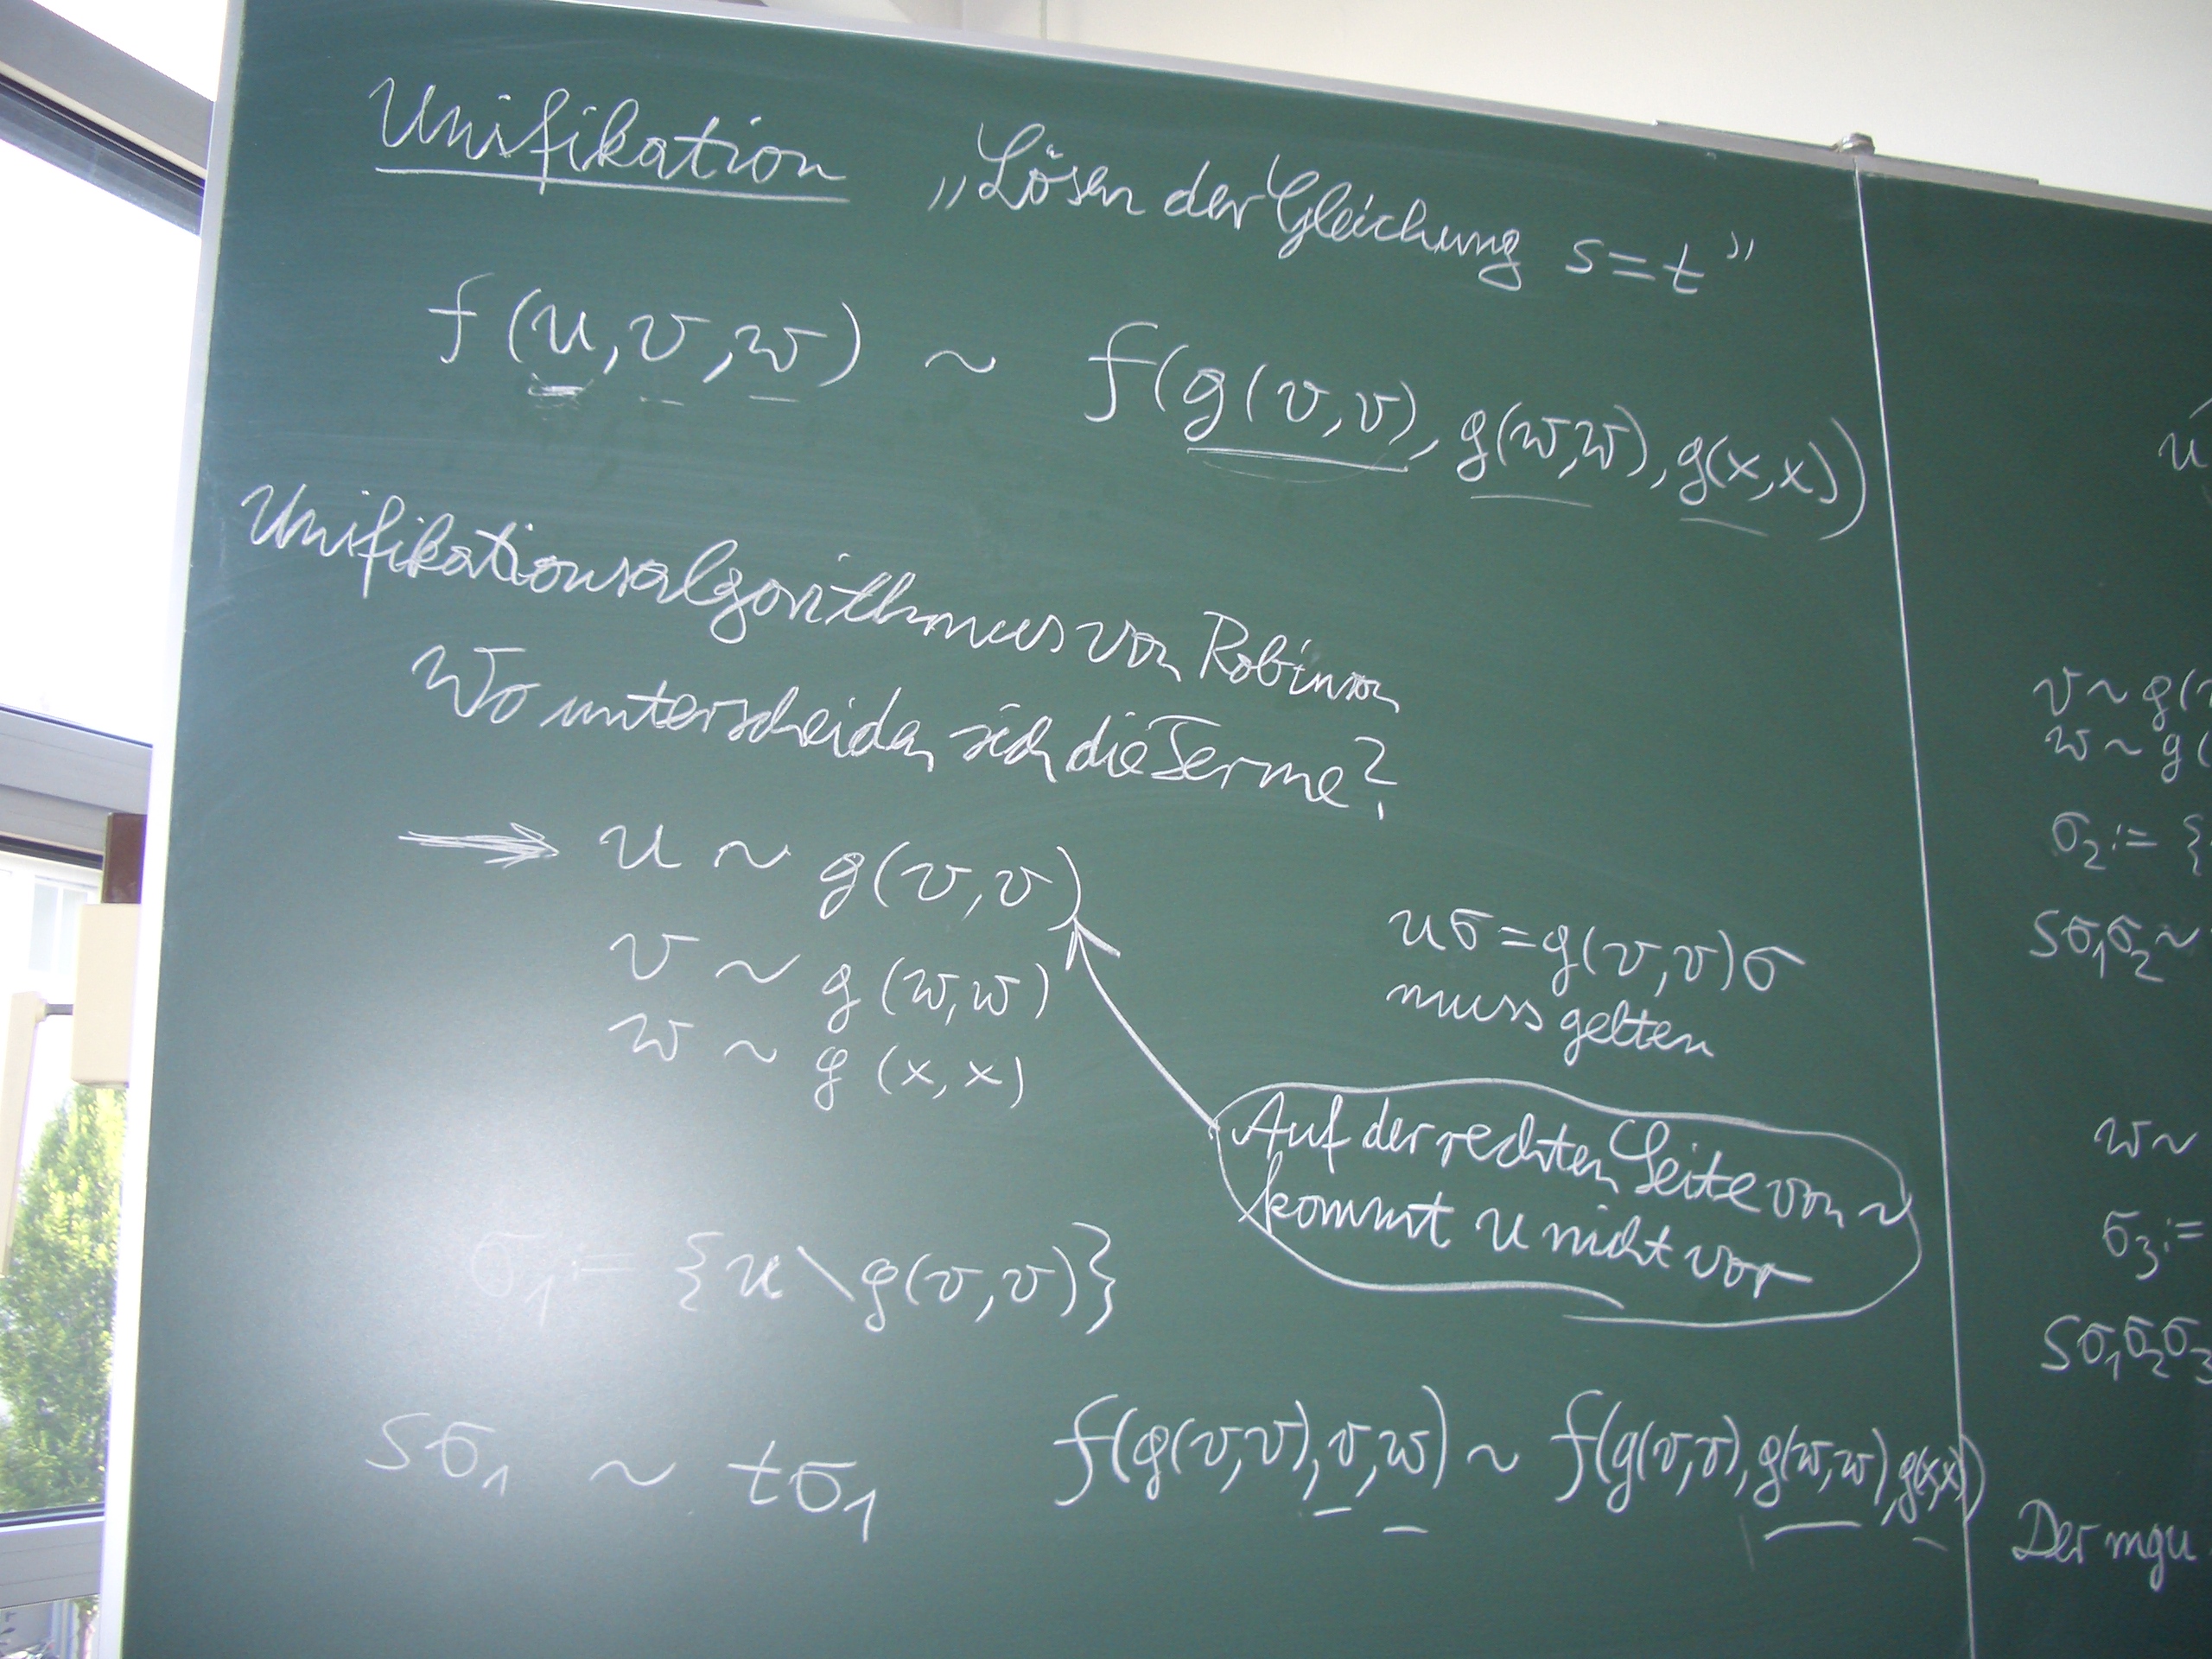 Unifikation „Lösen der Gleichung s=t”
f(u,v,w) ~ f(g(v,v), g(w,w), g(x,x))
Unifikationsalgorithmus von Robinson
Wo unterscheiden sich die Terme?
u ~ g(v,v)
v ~ g(w,w)
w ~ g(x,x)
uσ=g(v,v)σ
muss gelten
Auf der rechten Seite von ~
kommt u nicht vor
σ₁:= {u\g(v,v)}
sσ₁ ~ tσ₁ f(g(v,v),v,w) ~ f(g(v,v),g(w,w),g(x,x))
u
v~g(
w~g(
σ₂:= {
sσ₁σ₂~
w~
σ₃:=
sσ₁σ₂σ₃
Der mgu